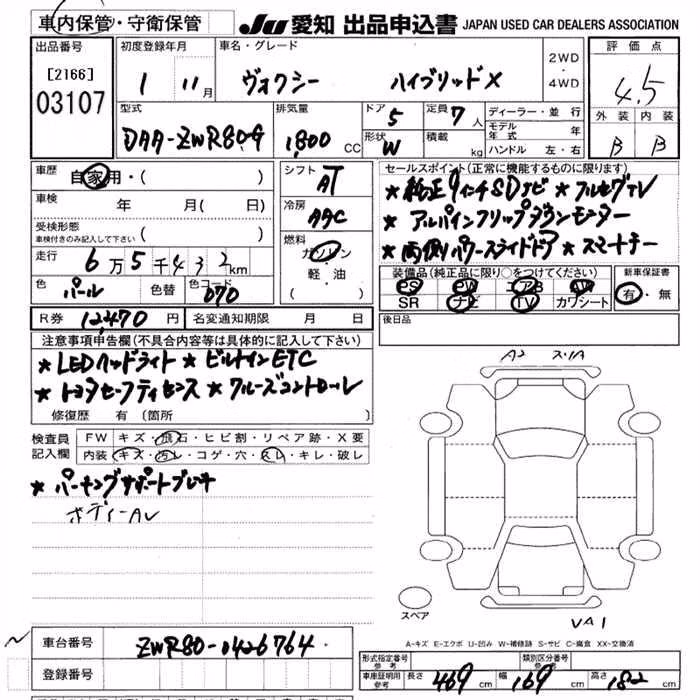 車内保管・守衛保管 JU 愛知 出品申込書 JAPAN USED CAR DEALERS ASSOCIATION
出品番号 初度登録年月 車名・グレード 評価点
[2166] 1 11月 ヴォクシー ハイブリッドX 2WD・4WD 4.5
03107 型式 排気量 ドア 5 定員 7人 ディーラー・並行 外装 内装
DAA-ZWR80-G 1,800 CC 形状 W 積載 kg モデル年式 年 B B
ハンドル 左・右
車歴 自家用・( ) シフト AT セールスポイント(正常に機能するものに限ります)
車検 年 月( 日) 冷房 AAC ★純正9インチSDナビ ★フルセグTV
受検形態 ★アルパインフリップダウンモニター
車検付きのみ記入して下さい( ) 燃料 ★両側パワースライドドア ★スマートキー
走行 6万5千432km ガソリン・軽・油 ( ) 装備品(純正品に限り○をつけてください) 新車保証書
色 パール 色替 色コード 070 PS PW エアB AW 有・無
SR ナビ TV カワシート
R券 12,470円 名変通知期限 月 日 後日品
注意事項申告欄(不具合内容等は具体的に記入して下さい)
★LEDヘッドライト ★ビルトインETC
★トヨタセーフティセンス ★クルーズコントロール
修復歴 有 (箇所 )
検査員記入欄 FW キズ・飛石・ヒビ割・リペア跡・X要
内装 キズ・汚レ・コゲ・穴・スレ・キレ・破レ
★パーキングサポートブレーキ
ボディーAU
A2
スペア
UA1
A-キズ E-エクボ U-凹み W-補修跡 S-サビ C-腐食 XX-交換済
車台番号 ZWR80-0426764
登録番号
形式指定番号 参考 類別区分番号 参考
車庫証明用参考 長さ 469cm 幅 169cm 高さ 182cm